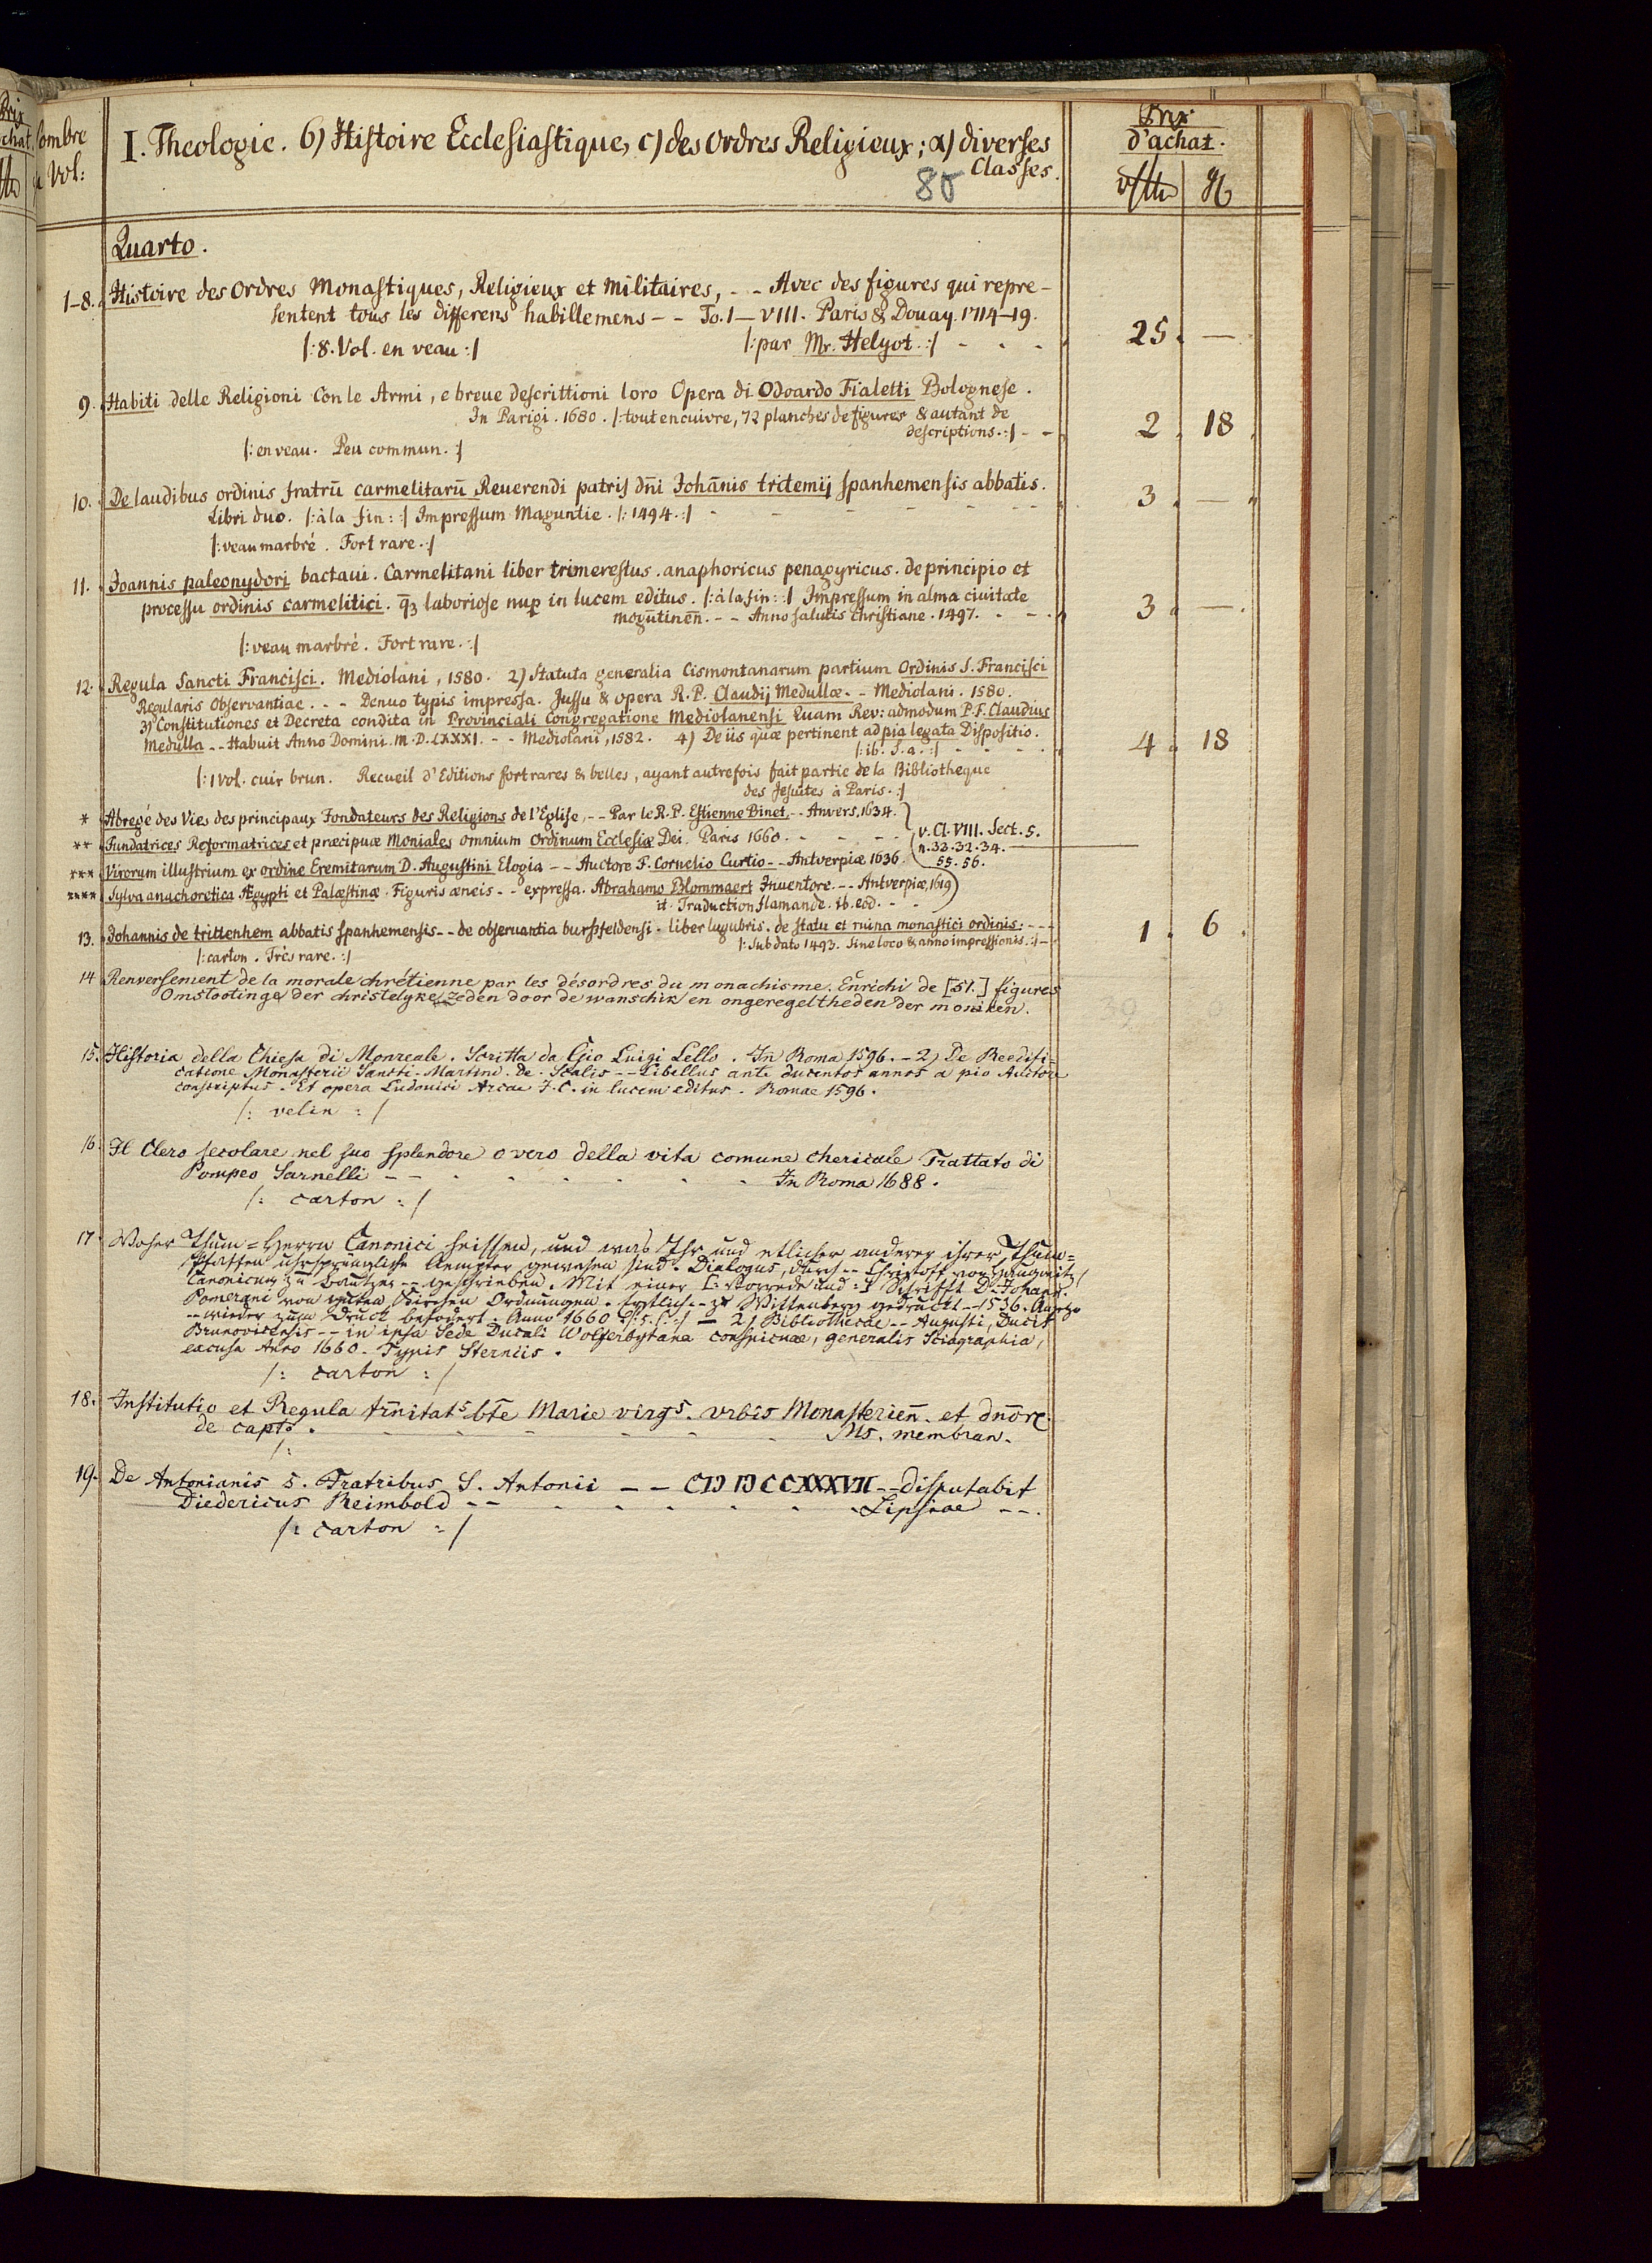 Prix
Nombre
d'achat.
Vol:
I. Theologie. b) Histoire Ecclesiastique, c) des Ordres Religieux; α) diverses
Classes.
80
Prix
d'achat.
Quarto.
1-8. Histoire des Ordres Monastiques, Religieux et Militaires, - - Avec des figures qui repre-
sentent tous les differens habillemens - - To. I - VIII. Paris & Douay. 1714-19.
/: 8. Vol. en veau :/ /: par Mr. Helyot. :/ - - - 25. —
9. Habiti delle Religioni con le Armi, e breue descrittioni loro Opera di Odoardo Fialetti Bolognese.
In Parigi. 1680. /: tout en cuivre, 72 planches de figures & autant de
descriptions. :/ - - 2. 18.
/: en veau. Peu commun. :/
10. De laudibus ordinis fratrū carmelitarū Reuerendi patris dn̄i Johān̄is tritemij spanhemensis abbatis.
Libri duo. /: à la fin: :/ Impressum Maguntie. /: 1494. :/ - - - - - - 3. —
/: veau marbré. Fort rare. :/
11. Joannis paleonydori bactaui. Carmelitani liber trimerestus. anaphoricus penagyricus. de principio et
processu ordinis carmelitici. q̄ȝ laboriose nup̱ in lucem editus. /: à la fin: :/ Impressum in alma ciuitate
mogūtineñ. - - Anno salutis christiane. 1497. - - - 3. —
/: veau marbré. Fort rare. :/
12. Regula Sancti Francisci. Mediolani, 1580. 2) Statuta generalia Cismontanarum partium Ordinis S. Francisci
Regularis Observantiae. - - Denuo typis impressa. Jussu & opera R. P. Claudij Medullæ. - Mediolani. 1580.
3) Constitutiones et Decreta condita in Provinciali Congregatione Mediolanensi Quam Rev: admodum P. F. Claudius
Medulla - - Habuit Anno Domini. M. D. LXXXI. - - Mediolani, 1582. 4) De iis quæ pertinent ad pia legata Dispositio.
/: ib. S. a. :/ - - - - 4. 18
/: 1 Vol. cuir brun. Recueil d'Editions fort rares & belles, ayant autrefois fait partie de la Bibliotheque
des Jesuites à Paris. :/
* Abregé des Vies des principaux Fondateurs des Religions de l'Eglise, - - Par le R. P. Estienne Binet. - - Anvers, 1634.
** Fundatrices Reformatrices et præcipuæ Moniales omnium Ordinum Ecclesiæ Dei. Paris 1660. - - - - v. Cl. VIII. Sect. 5.
n. 32. 32. 34.
*** Virorum illustrium ex ordine Eremitarum D. Augustini Elogia - - Auctore F. Cornelio Curtio - - Antverpiæ 1636. 55. 56.
**** Sylva anachoretica Ægypti et Palæstinæ. Figuris æneis - - expressa. Abrahamo Blommaert Inventore. - - Antverpiæ, 1619
it. Traduction flamande. ib. eod. - -
13. Johannis de trittenhem abbatis spanhemensis - - de obseruantia bursfeldensi. liber lugubris. de statu et ruina monastici ordinis: - - - 1. 6.
/: sub dato 1493. Sine loco & anno impressionis. :/ -
/: carton. Très rare. :/
14 Renversement de la morale chrétienne par les désordres du monachisme. Enrichi de [51.] figures
Omstootinge der christelyke zeden door de wanschik en ongeregeltheden der moniken.
15. Historia della Chiesa di Monreale. Scritta da Gio Luigi Lello. In Roma 1596. - 2) De Reedifi=
catione Monasterii Sancti Martini. de. Scalis - - Libellus ante ducentos annos a pio Auctore
conscriptus. Et opera Ludovici Arcae J. C. in lucem editus. Romae 1596.
/: velin :/
16. Il Clero secolare nel suo splendore overo della vita comune chericale Trattato di
Pompeo Sarnelli - - - - - - - - In Roma 1688.
/: carton :/
17. Woher Thum=Herrn Canonici heissen, und was Ihr und etlicher anderer ihrer Thum=
Pfaffen uhrsprungliche Aempter gewesen sind. Dialogus, durch - - Christoff von Haugwitz /
Canonicum zu Bautzen - - geschrieben. Mit einer [: Vorrede und :] Schrifft D. Johann.
Pomerani von guten Kirchen Ordnungen. Erstlich - - zu Wittenberg gedruckt - - 1536. Anjetzo
- - wieder zum Druck befodert. Anno 1660 - 2) Bibliothecae - - Augusti, Ducis
Brunovicensis - - in ipsa Sede Ducali Wolferbytana conspicuae, generalis Sciagraphia,
excusa Anno 1660. Typis Sterniis.
/: carton :/
18. Institutio et Regula trīnitat⁵ bt̄e Marie virg⁵. vrbis Monasterien̄. et dn̄or̄
de capt°. - - - - - - - Ms. membran.
/:
19. De Antonianis s. Fratribus S. Antonii - - CIƆ IƆCCXXXVII - - disputabit
Diedericus Reimbold - - - - - - - - Lipsiae - -.
/: carton :/